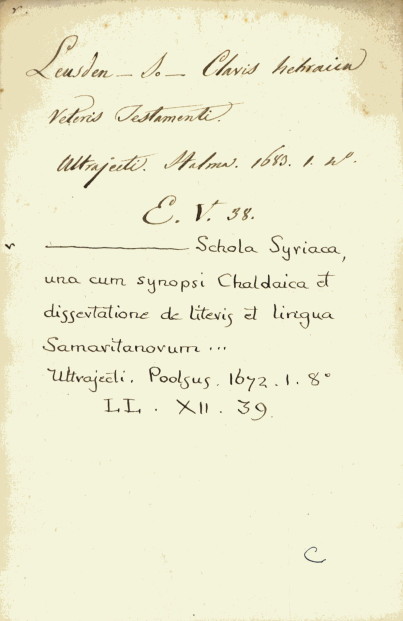 v.
Leusden - Jo - Clavis hebraica
Veteris Testamenti.
Ultrajecti. Halma. 1683. 1. 4º.
E. V. 38.
v ——— Schola Syriaca,
una cum synopsi Chaldaica et
dissertatione de literis et lingua
Samaritanorum ...
Ultrajecti. Poolsus. 1672. 1. 8º
LL. XII. 39.
C